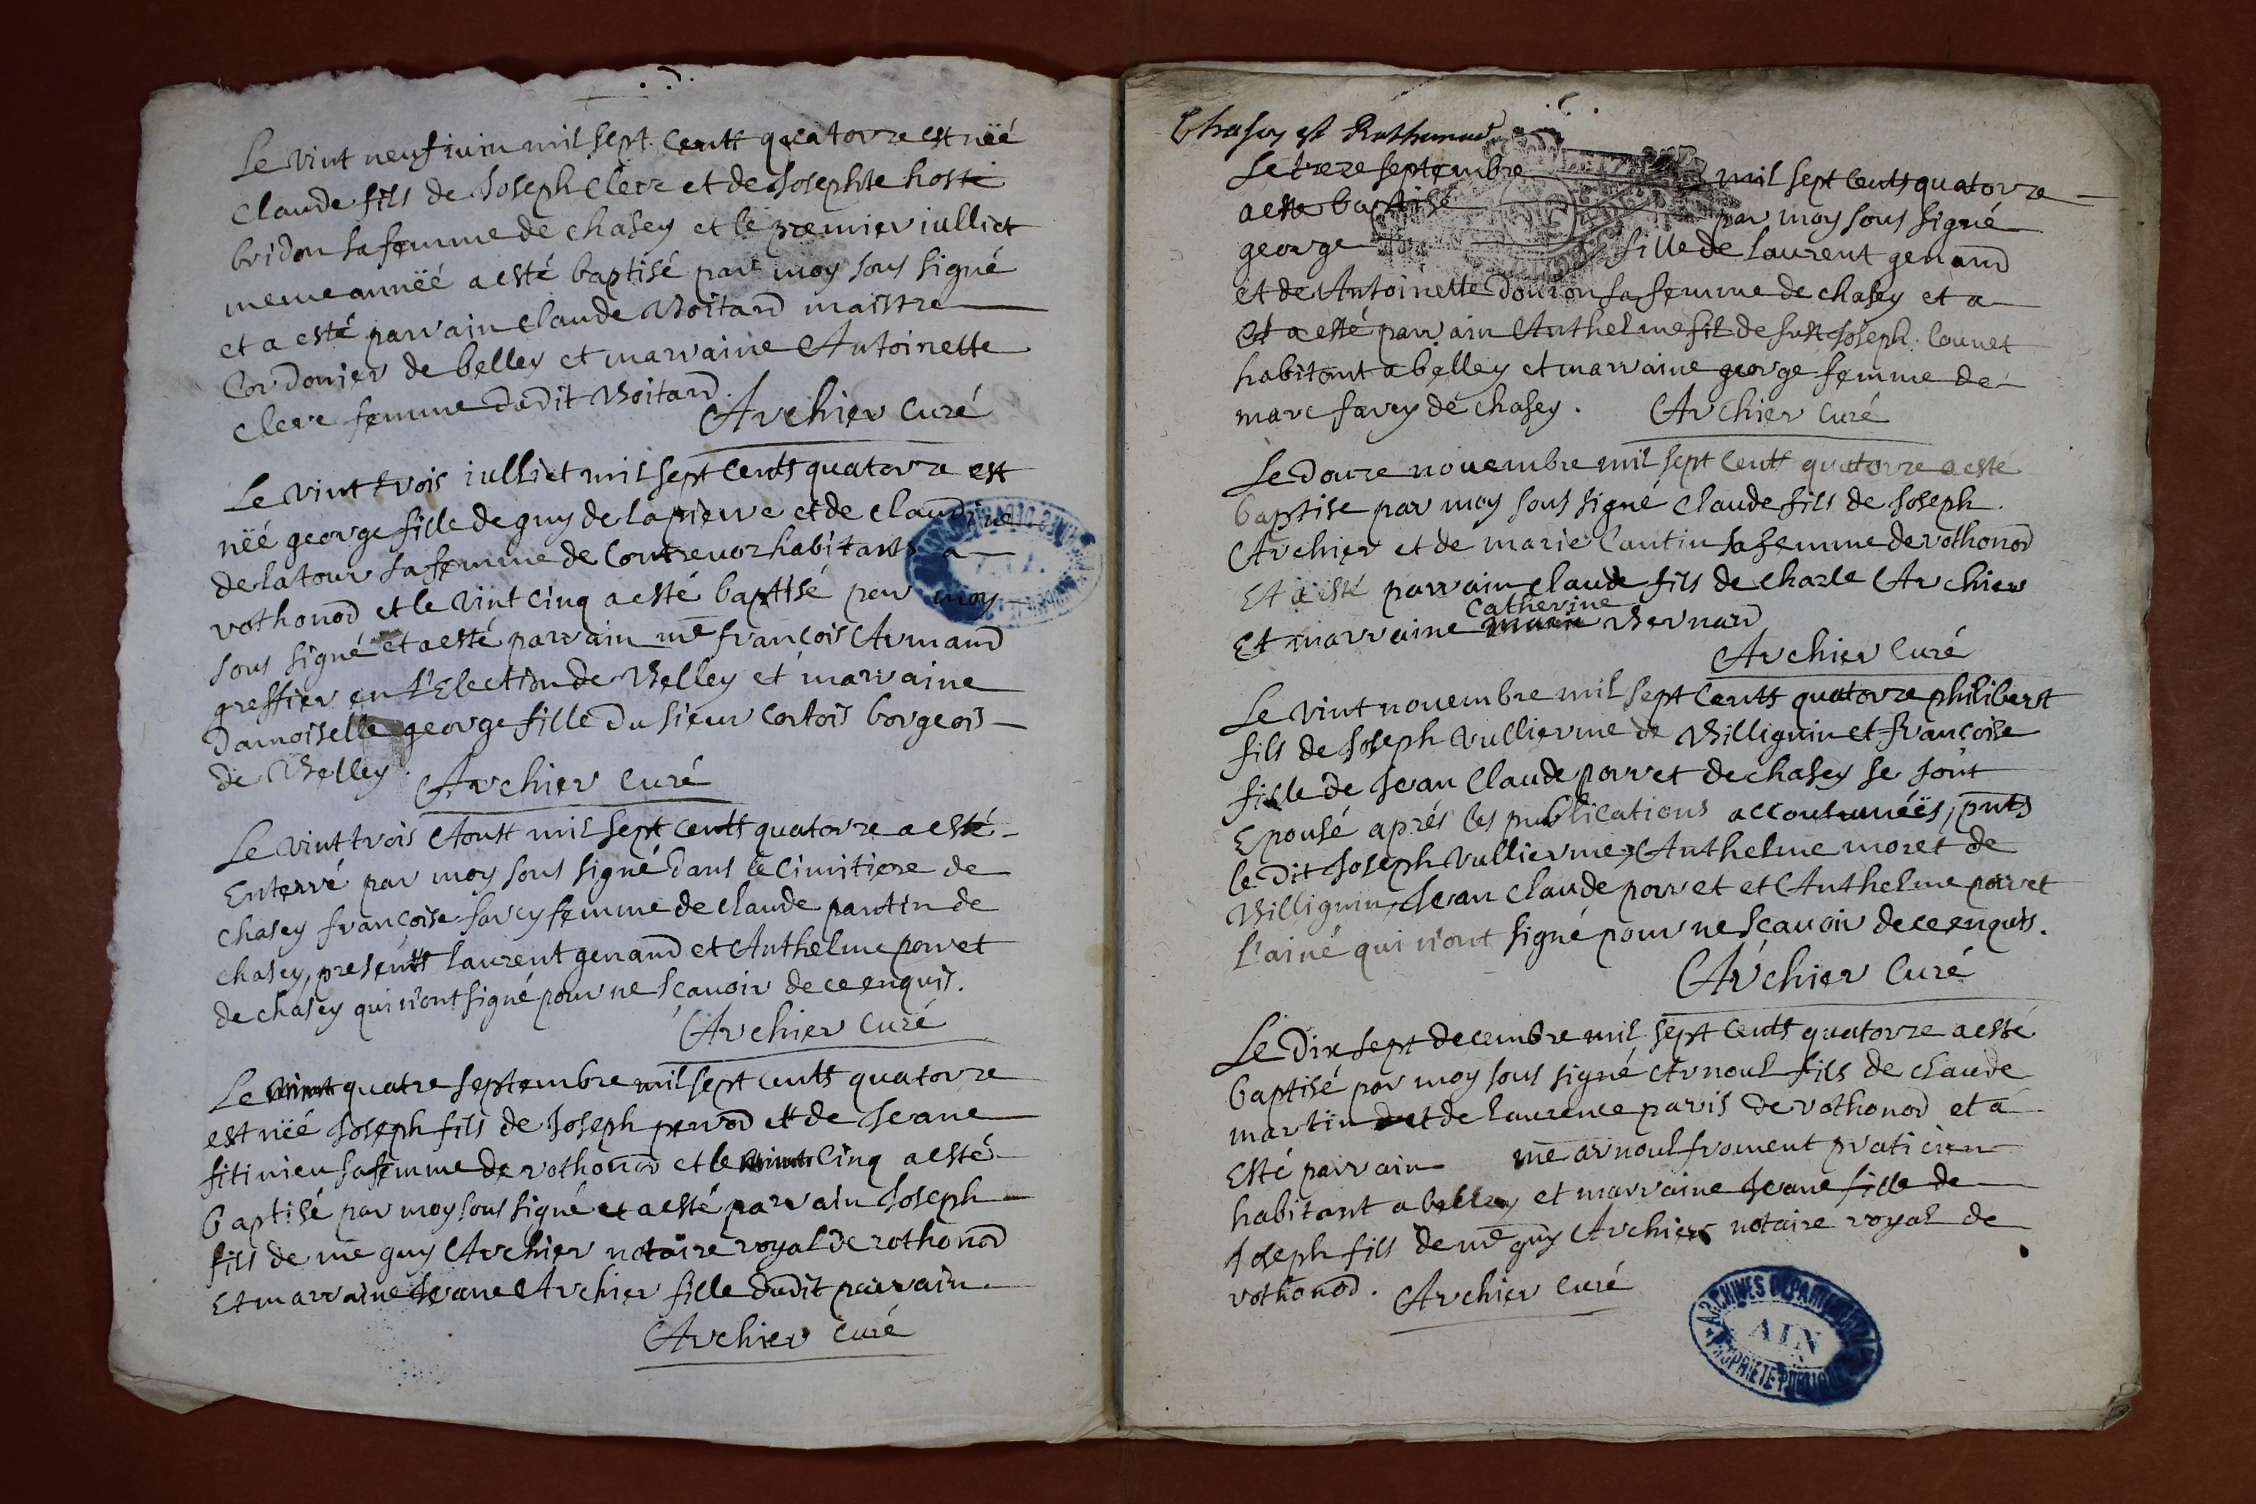 Le vint neuf iuin mil sept cents quatorze est néé
Claude fils de Joseph Clerc et de Josephte hoste
bridon sa femme de chasey et le premier iulliet
meme annéé a esté baptisé par moy sous signé
et a esté parrain Claude Boitard maistre
Cordonier de belley et marraine Antoinette
Clerc femme dudit Boitard.
Archier curé
Le vint trois iulliet mil sept cents quatorze est
néé george fille de guy de lapierre et de claudine
de latour sa femme de Contrevoz habitants a
rothonod et le vint cinq a esté baptisé par moy
sous signé et a esté parrain me françois Armand
greffier en l'Election de Belley et marraine
Damoiselle george fille du sieur Cortois borgeois
de Belley. Archier curé
Le vint trois Aoust mil sept cents quatorze a esté
Enterré par moy sous signé dans le cimitiere de
chasey françoise farcy femme de claude pantin de
chasey, presents laurent genand et Anthelme porret
de chasey qui n'ont signé pour ne sçavoir de ce enquis.
Archier curé
Le vint quatre septembre mil sept cents quatorze
est néé Joseph fils de Joseph perrod et de Jeane
fitinieu sa femme de rothonod et le vint cinq a esté
Baptisé par moy sous signé et a esté parrain Joseph
fils de me guy Archier notaire royal de rothonod
Et marraine Jeane Archier fille dudit parrain.
Archier curé
Chasey et Rothonod
Le treze septembre mil sept cents quatorze
a esté baptisé par moy sous signé
george fille de laurent genand
et de Antoinette Douron sa femme de chasey et a
et a esté parrain Anthelme fil de fust Joseph Counet
habitant a belley et marraine george femme de
marc farcy de chasey. Archier curé
Le Douze nouembre mil sept cents quatorze a esté
baptise par moy sous signé Claude fils de Joseph
Archier et de marie Cantin sa femme de rothonod
Et a esté parrain claude fils de charle Archier
Catherine
Et marraine marie Bernard
Archier curé
Le vint nouembre mil sept cents quatorze philibert
fils de Joseph Vullierme de Billignin et françoise
fille de Jean Claude porret de chasey se sont
Epousé aprés les publications accoutuméës, pnts
le dit Joseph Vullierme, Anthelme moret de
Billignin, Jean Claude porret et Anthelme porret
l'ainé qui n'ont signé pour ne sçavoir de ce enquis.
Archier Curé
Le Dix sept decembre mil sept cents quatorze a esté
baptisé par moy sous signé Arnoul fils de claude
martin et de laurence paris de rothonod et a
Esté parrain me arnoul froment praticien
habitant a belley et marraine Jeane fille de
Joseph fils de me guy Archier notaire royal de
rothonod. Archier curé
ARCHIVES DEPARTEMENTALES
AIN
PROPRIETE PUBLIQUE